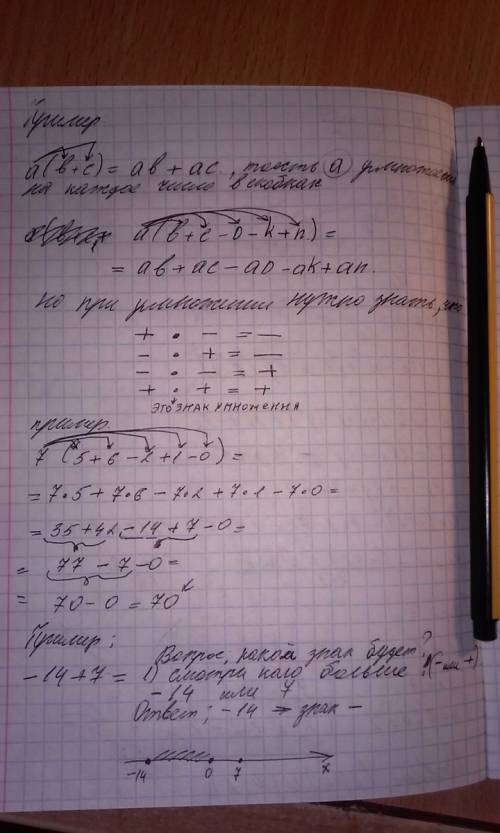 Пример
a(b+c) = ab + ac, тоесть a умножаем
на каждое число в скобках
a(b+c-D-k+n) =
= ab + ac - aD - ak + an.
но при умножении нужно знать, что
+ · - = -
- · + = -
- · - = +
+ · + = +
это знак умножения
пример.
7 (5+6-2+1-0) =
= 7·5+7·6-7·2+7·1-7·0 =
= 35+42-14+7-0 =
= 77-7-0 =
= 70-0 = 70
Пример:
Вопрос, какой знак будет?
-14+7 = 1) смотри кого больше (- или +)
-14 или 7
Ответ: -14 ⇒ знак -
-14 0 7 x